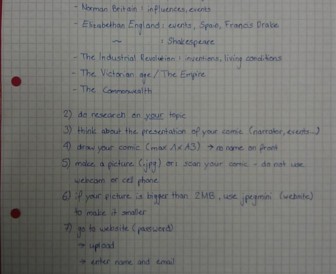 - Norman Britain : influences, events
- Elizabethan England : events, Spain, Francis Drake
~ : Shakespeare
- The Industrial Revolution : inventions, living conditions
- The Victorian age / The Empire
- The Commonwealth
2) do research on your topic
3) think about the presentation of your comic (narrator, events...)
4) draw your comic (max 1x A3) → no name on front
5) make a picture (.jpg) or : scan your comic - do not use
webcam or cell phone
6) if your picture is bigger than 2MB, use jpegmini (website)
to make it smaller
7) go to website (password)
→ upload
→ enter name and email